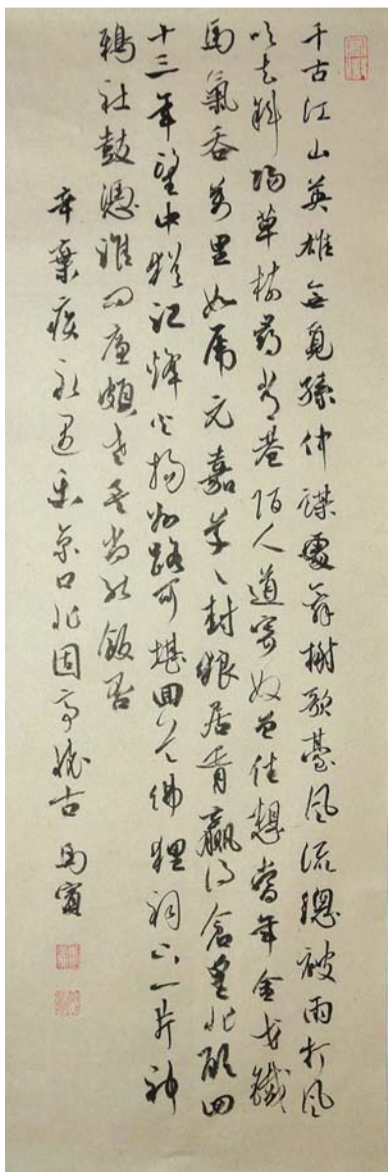 千古江山英雄無覓孫仲謀處舞榭歌臺風流總被雨打風
吹去斜陽草樹尋常巷陌人道寄奴曾住想當年金戈鐵
馬氣吞萬里如虎元嘉草々封狼居胥贏得倉皇北顧四
十三年望中猶記烽火揚州路可堪回首佛狸祠下一片神
鴉社鼓憑誰問廉頗老矣尚能飯否
辛棄疾永遇樂京口北固亭懷古 馬